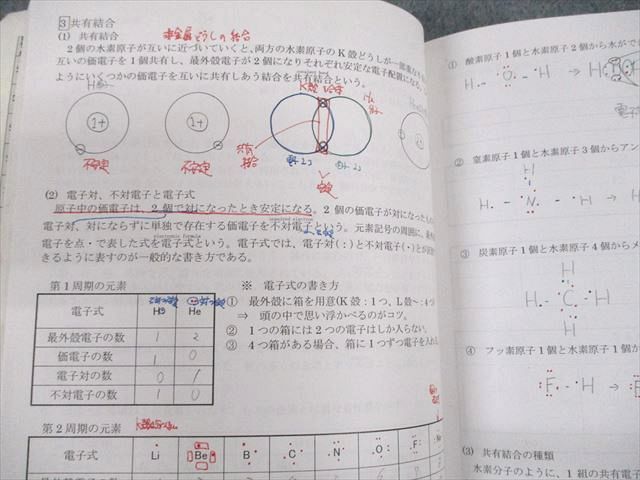 3 共有結合
(1) 共有結合
非金属どうしの結合
2個の水素原子が互いに近づいていくと、両方の水素原子のK殻どうしが一部重なり
互いの価電子を1個共有し、最外殻電子が2個になりそれぞれ安定な電子配置になる。
ようにいくつかの価電子を互いに共有しあう結合を共有結合という。
1+
1+
不安定
不安定
共有
電子2コ
電子2コ
安定
(2) 電子対、不対電子と電子式
原子中の価電子は、2個で対になったとき安定になる。2個の価電子が対になったもの
電子対、対にならずに単独で存在する価電子を不対電子という。元素記号の周囲に、最外
電子を点・で表した式を電子式という。電子式では、電子対(:)と不対電子(・)とが
きるように表すのが一般的な書き方である。
第1周期の元素
電子式 H He
最外殻電子の数 1 2
価電子の数 1 0
電子対の数 0 1
不対電子の数 1 0
※ 電子式の書き方
① 最外殻に箱を用意(K殻:1つ、L殻~:4つ
⇒ 頭の中で思い浮かべるのがコツ。
② 1つの箱には2つの電子はしか入らない。
③ 4つ箱がある場合、箱に1つずつ電子を入れ
第2周期の元素
電子式 Li Be B C N O F
① 酸素原子1個と水素原子2個から水がで
H O H
② 窒素原子1個と水素原子3個からアン
H N H
H
③ 炭素原子1個と水素原子4個からメ
H
H C H
H
④ フッ素原子1個と水素原子1個から
F H
(3) 共有結合の種類
水素分子のように、1組の共有電子